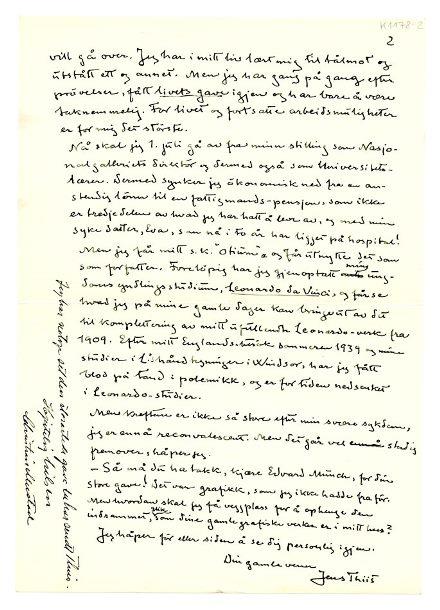 K1178-2
2
vill gå over. Jeg har i mitt liv lært mig til tålmot og
utstått ett og annet. Men jeg har gang på gang efter
prøvelser, fått livets gave igjen og har bare å være
taknemmelig. For livet og fortsatte arbeidsmuligheter
er for mig det største.
Nå skal jeg 1. juli gå av fra min stilling som Nasjo-
nalgalleriets direktør og dermed også som Universitets-
lærer. Dermed synker jeg økonomisk ned fra en an-
stendig lønn til en fattigmands-pensjon, som ikke
er tredjedelen av hvad jeg har hatt å leve av, og med min
syke datter, Eva, som nå i to år har ligget på hospital!
Men jeg får mitt s.k. "Otium" og får utnytte det som
som forfatter. Foreløpig har jeg gjenoptatt min ung-
doms yndlingsstudium, Leonardo da Vinci, og får se
hvad jeg på mine gamle dager kan bringe ut av det
til komplettering av mitt ufullendte Leonardo-verk fra
1909. Efter mitt Englands-besøk sommeren 1939 og mine
studier i L.s håndtegninger i Windsor, har jeg fått
blod på tand i polemikk, og er for tiden nedsenket
i Leonardo-studier.
Men kreftene er ikke så store efter min svære sykdom,
jeg er ennå reconvalescent. Men det går vel stadig
fremover, håper jeg.
– Så må du ha takk, kjære Edvard Munch, for din
store gave! Det var grafikk, som jeg ikke hadde fra før.
Men hvordan skal jeg få veggplass for å ophenge den
innrammet, slik som dine gamle grafiske verker er i mitt hus?
Jeg håper før eller siden å se dig personlig igjen.
Din gamle venn
Jens Thiis
Jeg har netop sett den
gave du har sendt Thiis.
Hjertelig hilsen